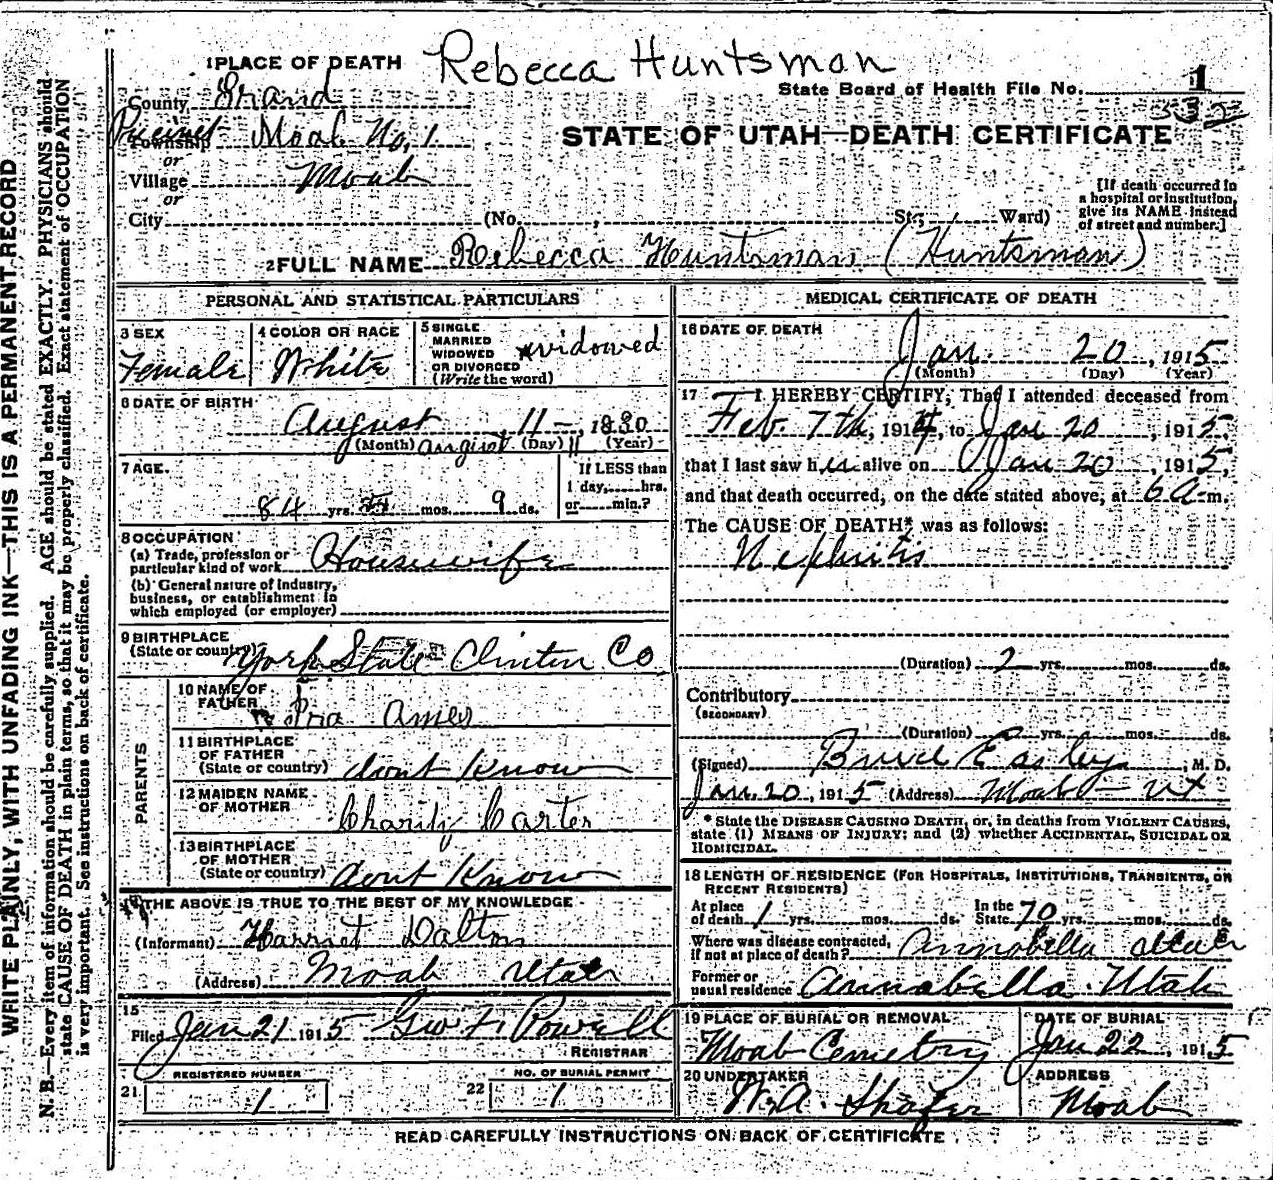 Rebecca Huntsman
1 PLACE OF DEATH
State Board of Health File No. 1
332
County Grand
STATE OF UTAH—DEATH CERTIFICATE
Precinct
Township Moab No. 1
or
Village Moab
or
City (No. , St.; Ward)
[If death occurred in
a hospital or institution,
give its NAME instead
of street and number.]
2 FULL NAME Rebecca Huntsman (Huntsman)
PERSONAL AND STATISTICAL PARTICULARS
3 SEX
Female
4 COLOR OR RACE
White
5 SINGLE
MARRIED
WIDOWED
OR DIVORCED
(Write the word)
widowed
6 DATE OF BIRTH
August 11 -, 1830
(Month) august (Day) 11 (Year)
7 AGE
84 yrs. mos. 9 ds.
If LESS than
1 day, hrs.
or min.?
8 OCCUPATION
(a) Trade, profession or
particular kind of work Housewife
(b) General nature of industry,
business, or establishment in
which employed (or employer)
9 BIRTHPLACE
(State or country) York State Clinton Co
PARENTS
10 NAME OF
FATHER Ira Ames
11 BIRTHPLACE
OF FATHER
(State or country) dont Know
12 MAIDEN NAME
OF MOTHER Charity Carter
13 BIRTHPLACE
OF MOTHER
(State or country) dont Know
14 THE ABOVE IS TRUE TO THE BEST OF MY KNOWLEDGE
(Informant) Harriet Dalton
(Address) Moab Utah
15
Filed Jan 21 1915 Geo F. Powell
REGISTRAR
21 REGISTERED NUMBER
1
22 NO. OF BURIAL PERMIT
1
MEDICAL CERTIFICATE OF DEATH
16 DATE OF DEATH
Jan. 20, 1915
(Month) (Day) (Year)
17 I HEREBY CERTIFY, That I attended deceased from
Feb 7th, 1914, to Jan 20, 1915,
that I last saw her alive on Jan 20, 1915,
and that death occurred, on the date stated above, at 6 A-m.
The CAUSE OF DEATH* was as follows:
Nephritis
(Duration) 2 yrs. mos. ds.
Contributory
(SECONDARY)
(Duration) yrs. mos. ds.
(Signed) , M. D.
Jan. 20, 1915 (Address) Moab - Ut
* State the DISEASE CAUSING DEATH, or, in deaths from VIOLENT CAUSES,
state (1) MEANS OF INJURY; and (2) whether ACCIDENTAL, SUICIDAL OR
HOMICIDAL.
18 LENGTH OF RESIDENCE (FOR HOSPITALS, INSTITUTIONS, TRANSIENTS, OR
RECENT RESIDENTS)
At place
of death 1 yrs. mos. ds.
In the
State 70 yrs. mos. ds.
Where was disease contracted,
if not at place of death? Annabella Utah
Former or
usual residence Annabella Utah
19 PLACE OF BURIAL OR REMOVAL
Moab Cemetry
DATE OF BURIAL
Jan 22, 1915
20 UNDERTAKER
W. A. Shafer
ADDRESS
Moab
READ CAREFULLY INSTRUCTIONS ON BACK OF CERTIFICATE
WRITE PLAINLY, WITH UNFADING INK—THIS IS A PERMANENT RECORD
N. B.—Every item of information should be carefully supplied. AGE should be stated EXACTLY. PHYSICIANS should
state CAUSE OF DEATH in plain terms, so that it may be properly classified. Exact statement of OCCUPATION
is very important. See instructions on back of certificate.